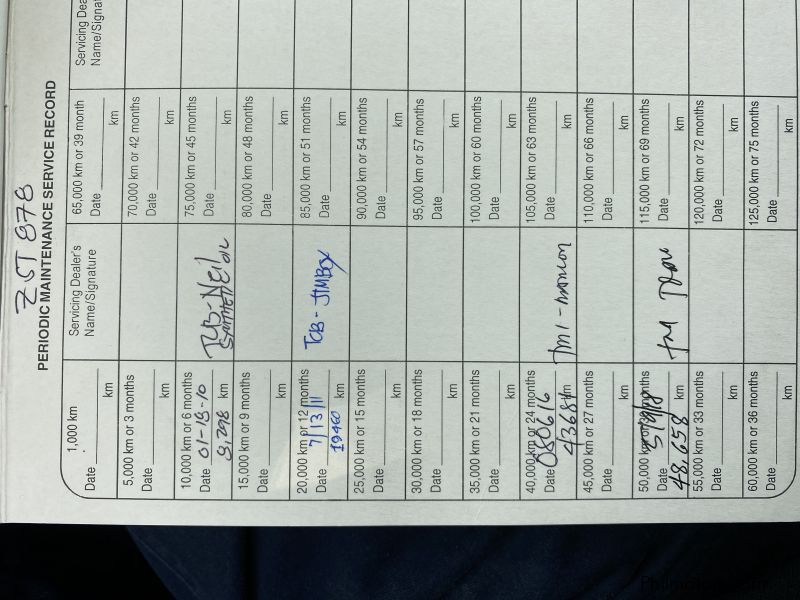 ZST 878
PERIODIC MAINTENANCE SERVICE RECORD
1,000 km
Date
km
Servicing Dealer's
Name/Signature
65,000 km or 39 month
Date
km
Servicing Dea
Name/Signat
5,000 km or 3 months
Date
km
70,000 km or 42 months
Date
km
10,000 km or 6 months
Date 01-18-10
km
75,000 km or 45 months
Date
km
15,000 km or 9 months
Date
km
80,000 km or 48 months
Date
km
20,000 km or 12 months
Date 7/13/11
19460 km
TCB - JIMBOY
85,000 km or 51 months
Date
km
25,000 km or 15 months
Date
km
90,000 km or 54 months
Date
km
30,000 km or 18 months
Date
km
95,000 km or 57 months
Date
km
35,000 km or 21 months
Date
km
100,000 km or 60 months
Date
km
40,000 km or 24 months
Date 080616
43681 km
105,000 km or 63 months
Date
km
45,000 km or 27 months
Date
km
110,000 km or 66 months
Date
km
50,000 km or months
Date
48,658 km
115,000 km or 69 months
Date
km
55,000 km or 33 months
Date
km
120,000 km or 72 months
Date
km
60,000 km or 36 months
Date
km
125,000 km or 75 months
Date
km